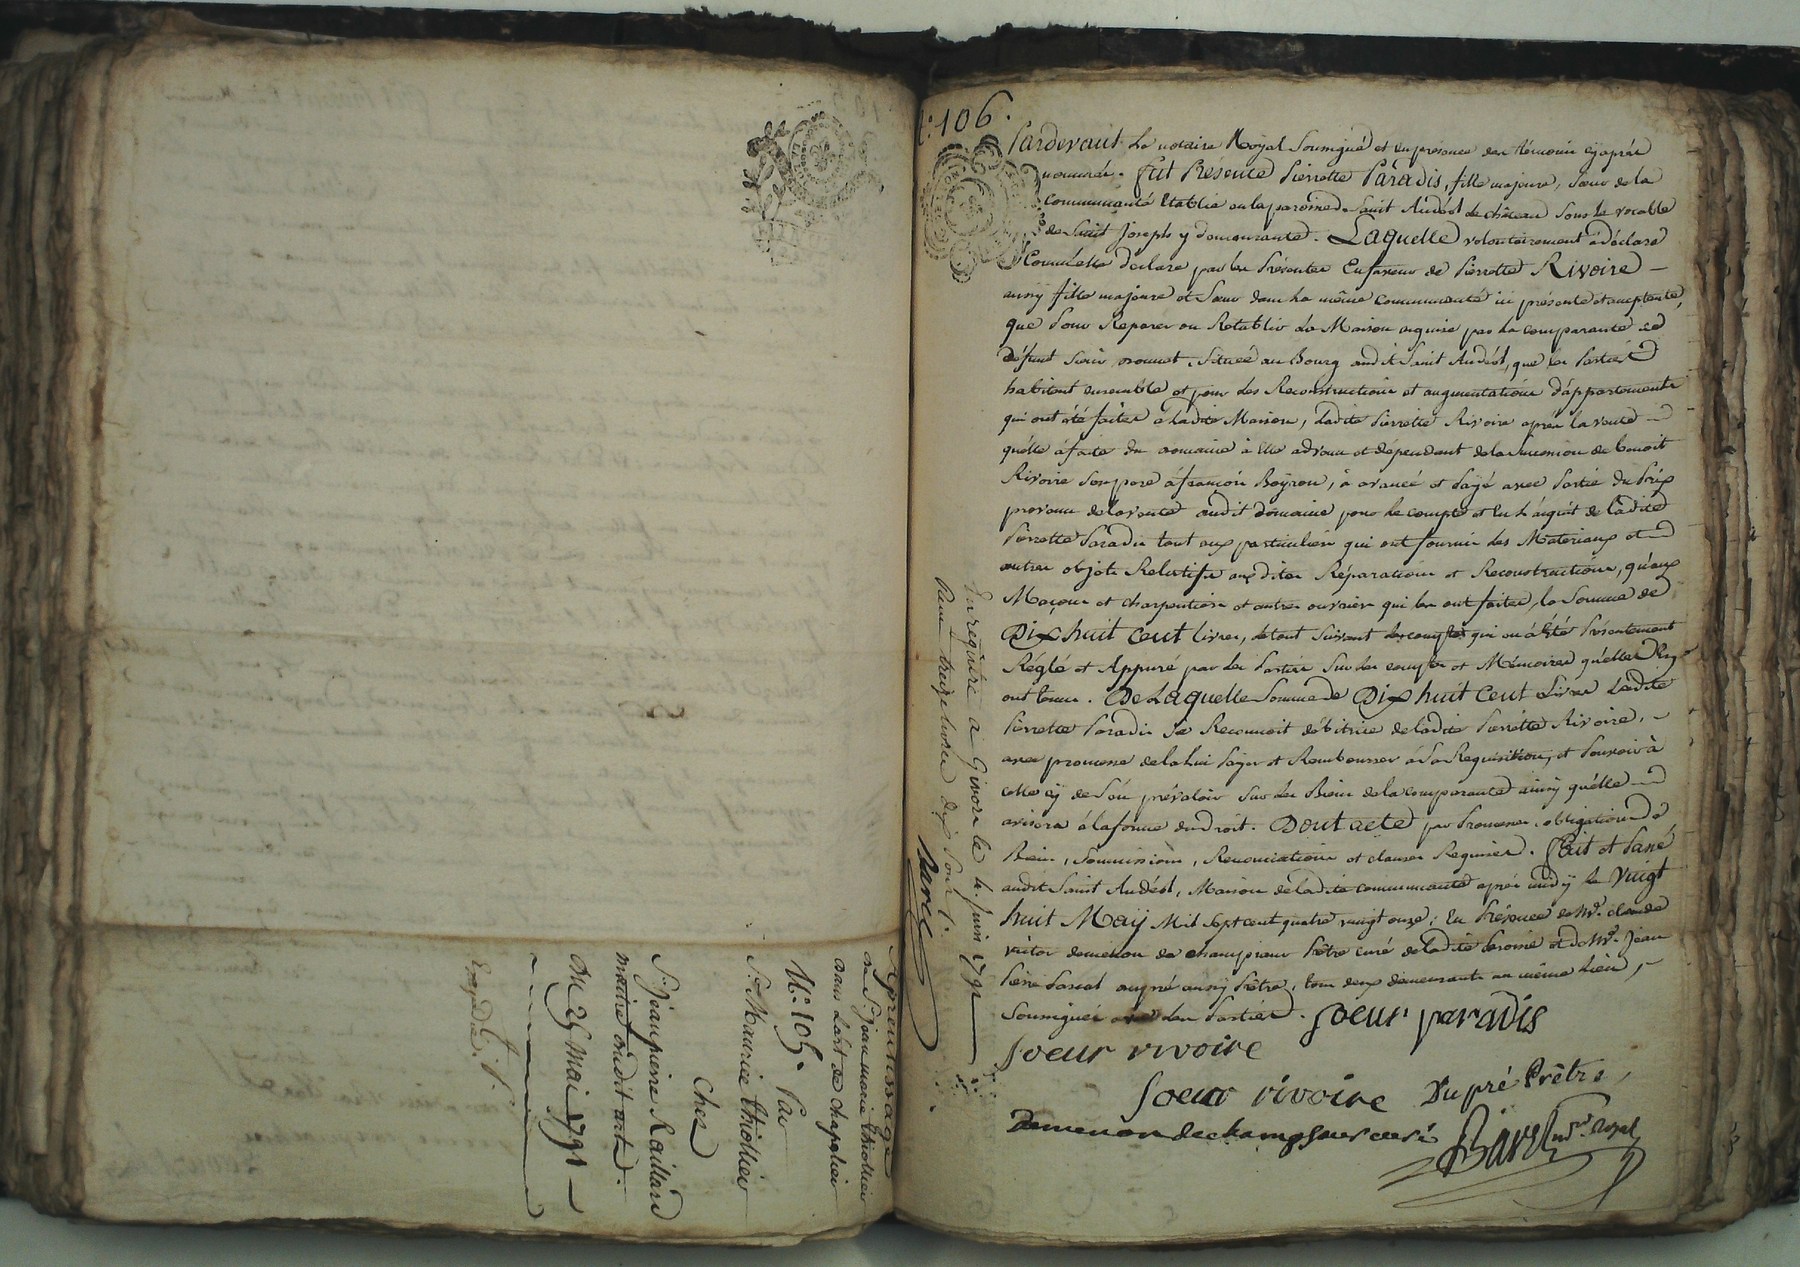 Aprentissage
de Sr. jean marie thiollier
dans Lart de chapelier
N.° 105. Par
Sr. Maurice thiollier
Chez
Sr. jean pierre Raillard
maitre audit art.
Du 25 mai 1791
Expedié.
N.° 106.
Pardevant Le notaire Royal Soussigné et en presence des témoins cÿ après
nommés. fut Présente Pierrette Paradis, fille majeure, sœur de la
Communauté Etablie en la paroisse de Saint Andéol de château Sous Le vocable
de Saint Joseph y demeurante. Laquelle volontairement à déclaré
Comme elle déclare par les Présentes En faveur de Pierrette Rivoire
aussÿ fille majeure et Sœur dans La même communauté ici présente et acceptante,
que Pour Reparer ou Retablir La Maison acquise par La comparante de
défunt Située au Bourg audit Saint Andéol, que les Parties
habitent ensemble et pour des Reconstructions et augmentations d'appartements
qui ont été faites à Ladite Maison, Ladite Pierrette Rivoire après la vente
quelle à faite du domaine à Elle advenu et dépendant de la succession de benoit
Rivoire Son pere à françois Boÿron, à avancé et Payé avec Partie du Prix
provenu de la vente dudit domaine pour Le compte et En L'acquit de Ladite
Pierrette Paradis tant aux particuliers qui ont fournis des Materiaux et
autres objets Relatifs auxdites Réparations et Reconstructions, qu'aux
Maçons et charpentiers et autres ouvriers qui les ont faites, la Somme de
Dix huit Cent Livres, le tout Suivant Le compte qui en à Eté Présentement
Réglé et Appuré par Les Parties Sur Les comptes et Mémoires qu'elles En
ont tenus. De Laquelle Somme de Dix huit Cent Livres Ladite
Pierrette Paradis Se Reconnoit débitrice de Ladite Pierrette Rivoire,
avec promesse de la Lui Payer et Rembourser à Sa Requisition, et Pouvoir à
celle cÿ de S'en prévaloir Sur Les Biens de la comparante ainsÿ qu'elle
avisera à la forme du Droit. Dont acte par Promesses, obligation de
Biens, Soumissions, Renonciations et clauses Requises. Fait et Passé
audit Saint Andéol, Maison de Ladite communauté après midÿ le Vingt
huit Maÿ Mil Sept cent quatre vingt onze; En Présence de Mre. claude
victor demenon de champsaur Prêtre curé de Ladite Paroisse et de Mre. Jean
Pierre Pascal dupré aussÿ Prêtre, tous deux demeurants au même Lieu,
Soussignés avec Les Parties. soeur paradis
soeur rivoire
soeur rivoire Dupré Prêtre,
Demenon de champsaur curé Barel nre. Royal
Enregistré a Givors le 4. juin 1791
Reçu treize livres dix Sous
Barel